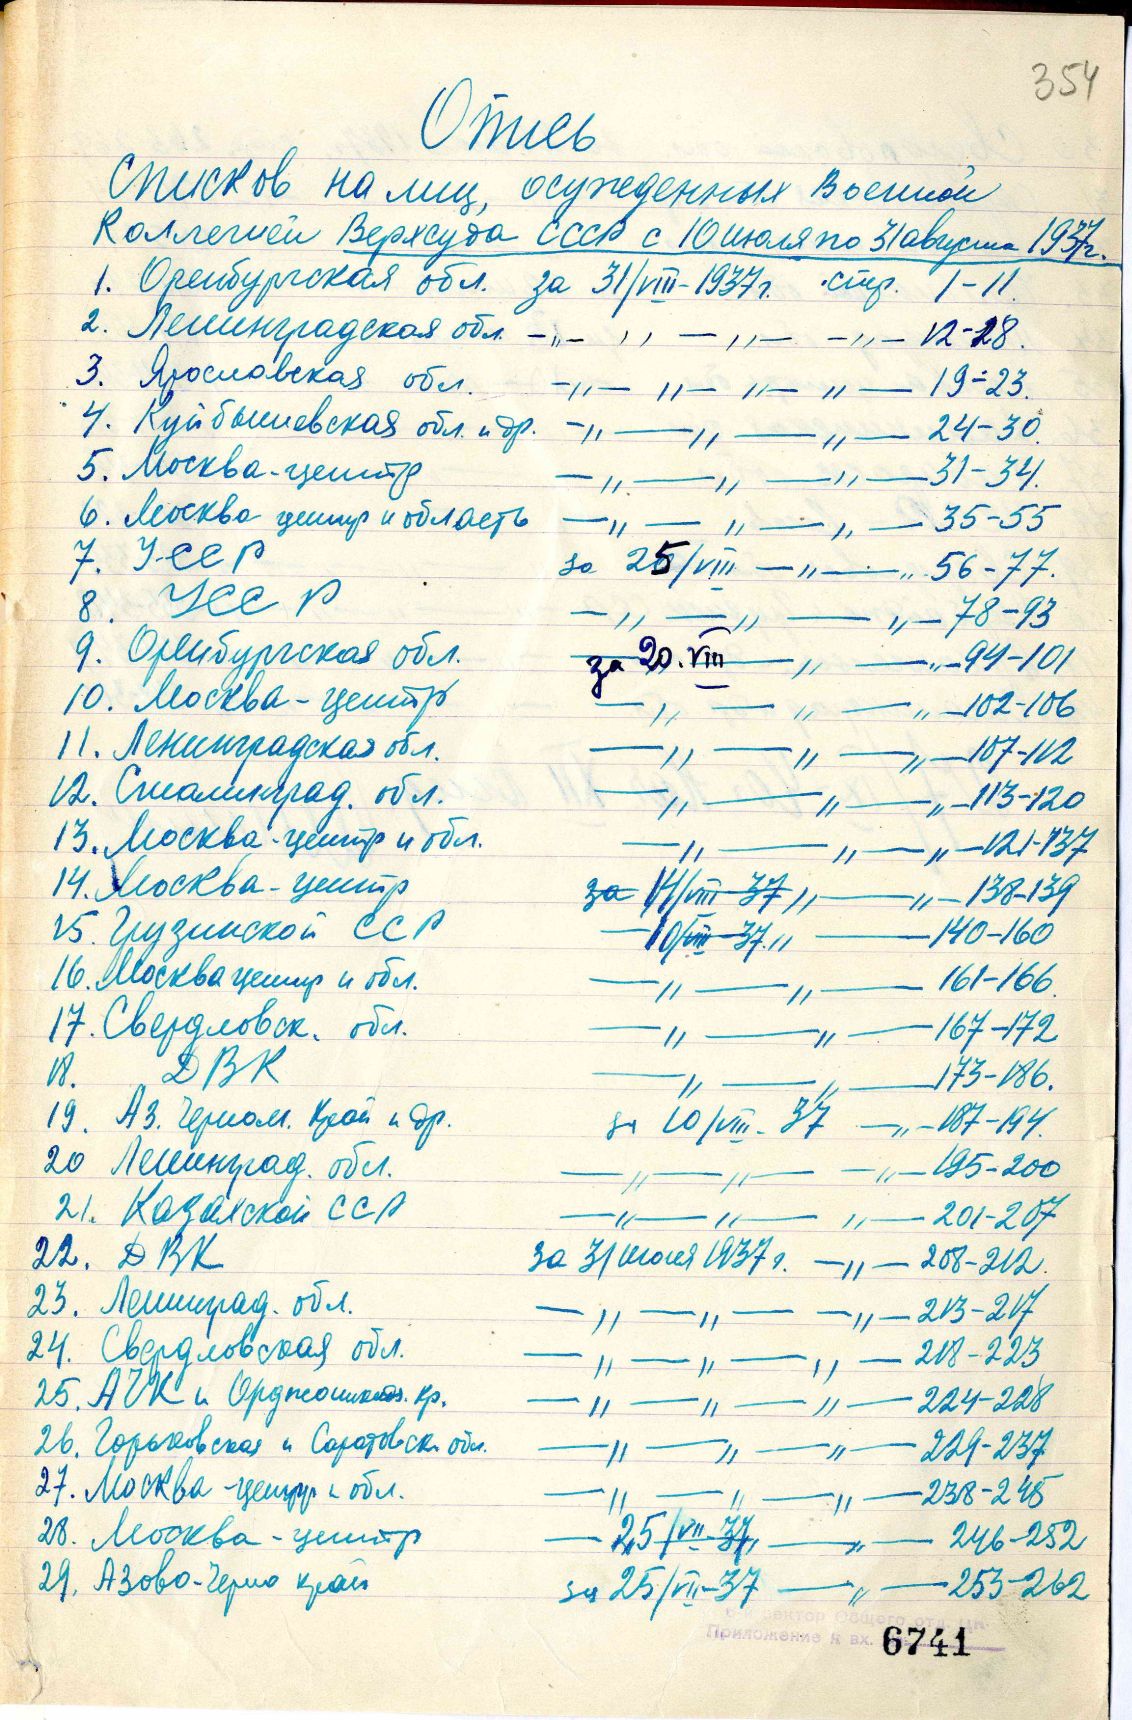 354
Опись
Списков на лиц, осужденных Военной
Коллегией Верхсуда СССР с 10 июля по 31 августа 1937г.
1. Оренбургская обл. за 31/VIII-1937г. стр. 1-11.
2. Ленинградская обл. -„- „ -„- -„- 12-28.
3. Ярославская обл. -„- „ - „ - „ - 19-23.
4. Куйбышевская обл. и др. -„-„-„- 24-30.
5. Москва-центр -„-„-„- 31-34.
6. Москва центр и область -„-„-„- 35-55
7. УССР за 25/VIII -„-„. 56-77.
8. УССР -„-„-„- 78-93
9. Оренбургская обл. за 20.VIII -„-„- 94-101
10. Москва-центр -„-„-„- 102-106
11. Ленинградская обл. -„-„-„- 107-112
12. Сталинград. обл. -„-„-„- 113-120
13. Москва-центр и обл. -„-„-„- 121-137
14. Москва-центр за 14/VIII 37 „-„- 138-139
15. Грузинской ССР - 10/VIII-37. „- 140-160
16. Москва центр и обл. -„-„- 161-166.
17. Свердловск. обл. -„-„- 167-172
18. ДВК -„-„- 173-186.
19. Аз. Черном. край и др. за 10/VIII-37 -„- 187-194.
20 Ленинград. обл. -„-„- -„- 195-200
21. Казахской ССР -„-„- „- 201-207
22. ДВК за 31 июля 1937г. -„- 208-212.
23. Ленинград. обл. -„-„- -„- 213-217
24. Свердловская обл. -„-„-„- 218-223
25. АЧК и Орджоникидз. кр. -„-„-„- 224-228
26. Горьковская и Саратовск. обл. -„-„-„- 229-237
27. Москва-центр и обл. -„-„-„- 238-245
28. Москва-центр - 25/VII-37 „-„- 246-252
29. Азово-Черно край за 25/VII-37 -„- 253-262
сектор Общего отд. ЦК
Приложение к вх.
6741